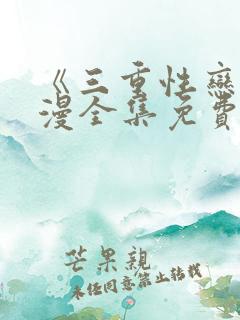 《三重性恋
漫全集免费
芒果親
未经同意禁止转载